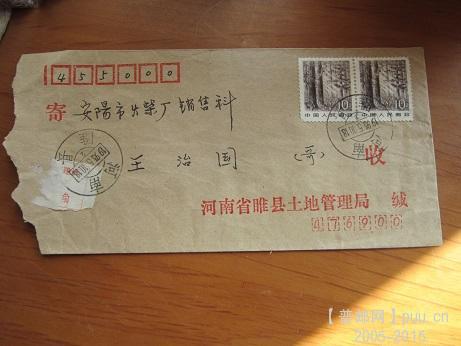 455000
10 10
中国人民邮政 中国人民邮政
寄 安阳市火柴厂销售科
王治国 (哥) 收
河南省睢县土地管理局 缄
476900
河南
【普邮网】puu.cn
2005-2015